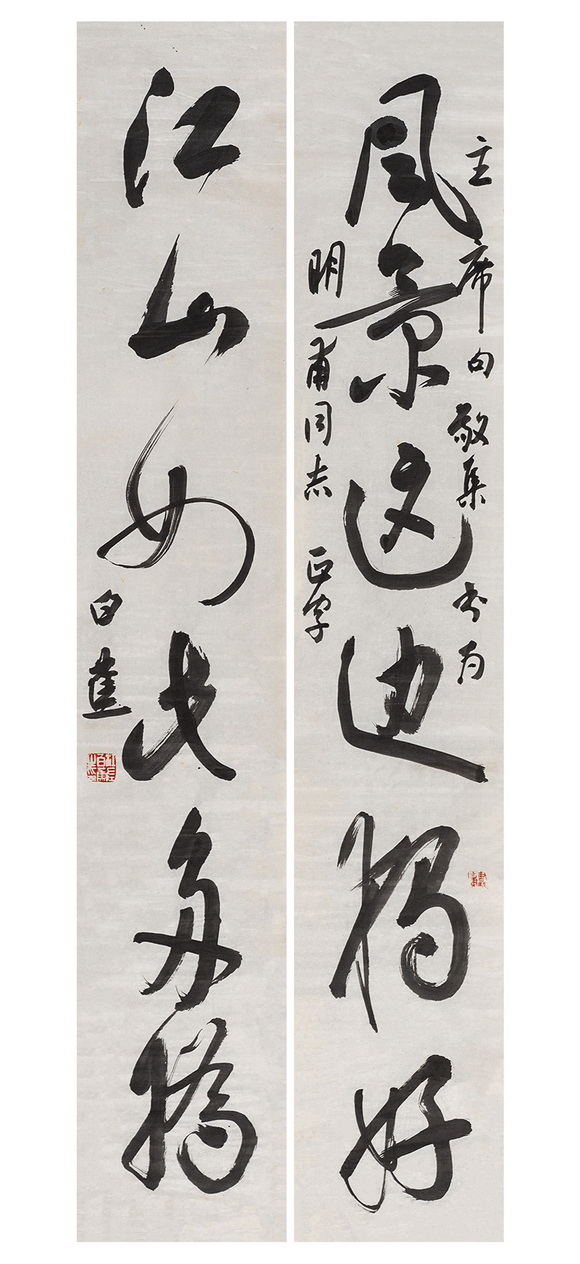 主席句敬集書为
風景这边獨好
明甫同志正字
江山如此多嬌
白蕉